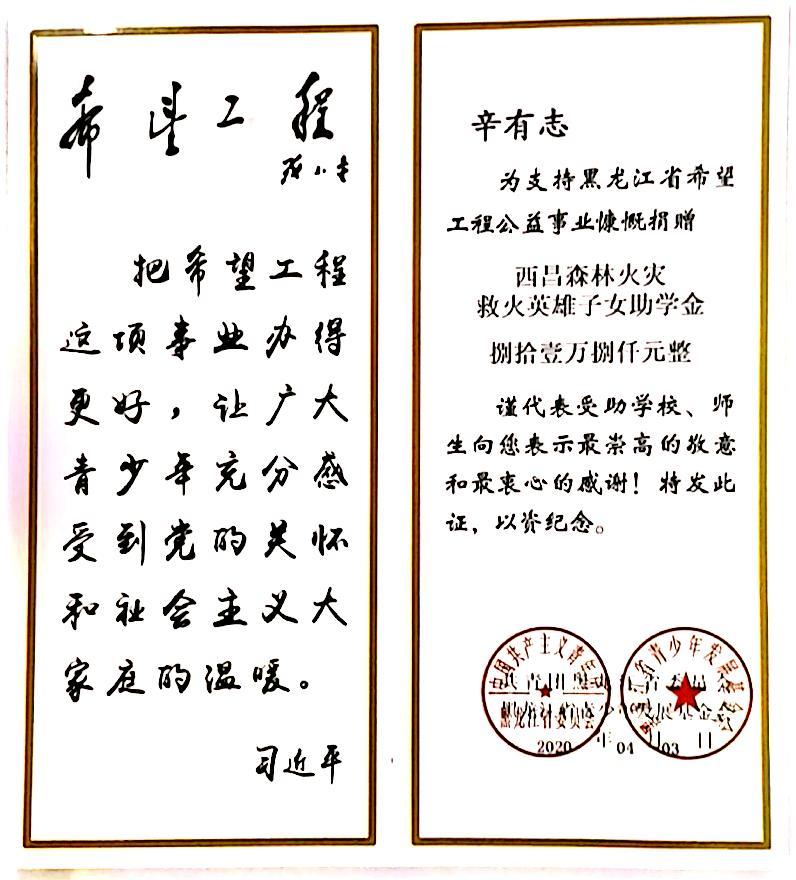 希望工程
邓小平
把希望工程
这项事业办得
更好，让广大
青少年充分感
受到党的关怀
和社会主义大
家庭的温暖。
习近平
辛有志
为支持黑龙江省希望
工程公益事业慷慨捐赠
西昌森林火灾
救火英雄子女助学金
捌拾壹万捌仟元整
谨代表受助学校、师
生向您表示最崇高的敬意
和最衷心的感谢！特发此
证，以资纪念。
2020年04月03日